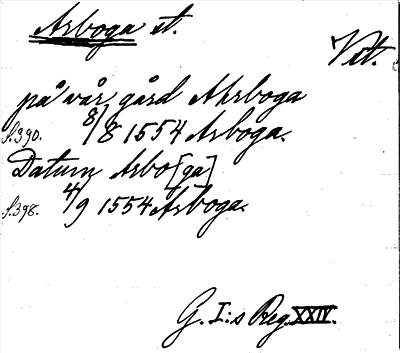 Arboga st.
Vst.
på vår gård Ahrboga
s. 390. 8/8 1554 Arboga.
Datum Arbo[ga]
s. 398. 4/9 1554 Arboga.
G. I:s Reg. XXIV.